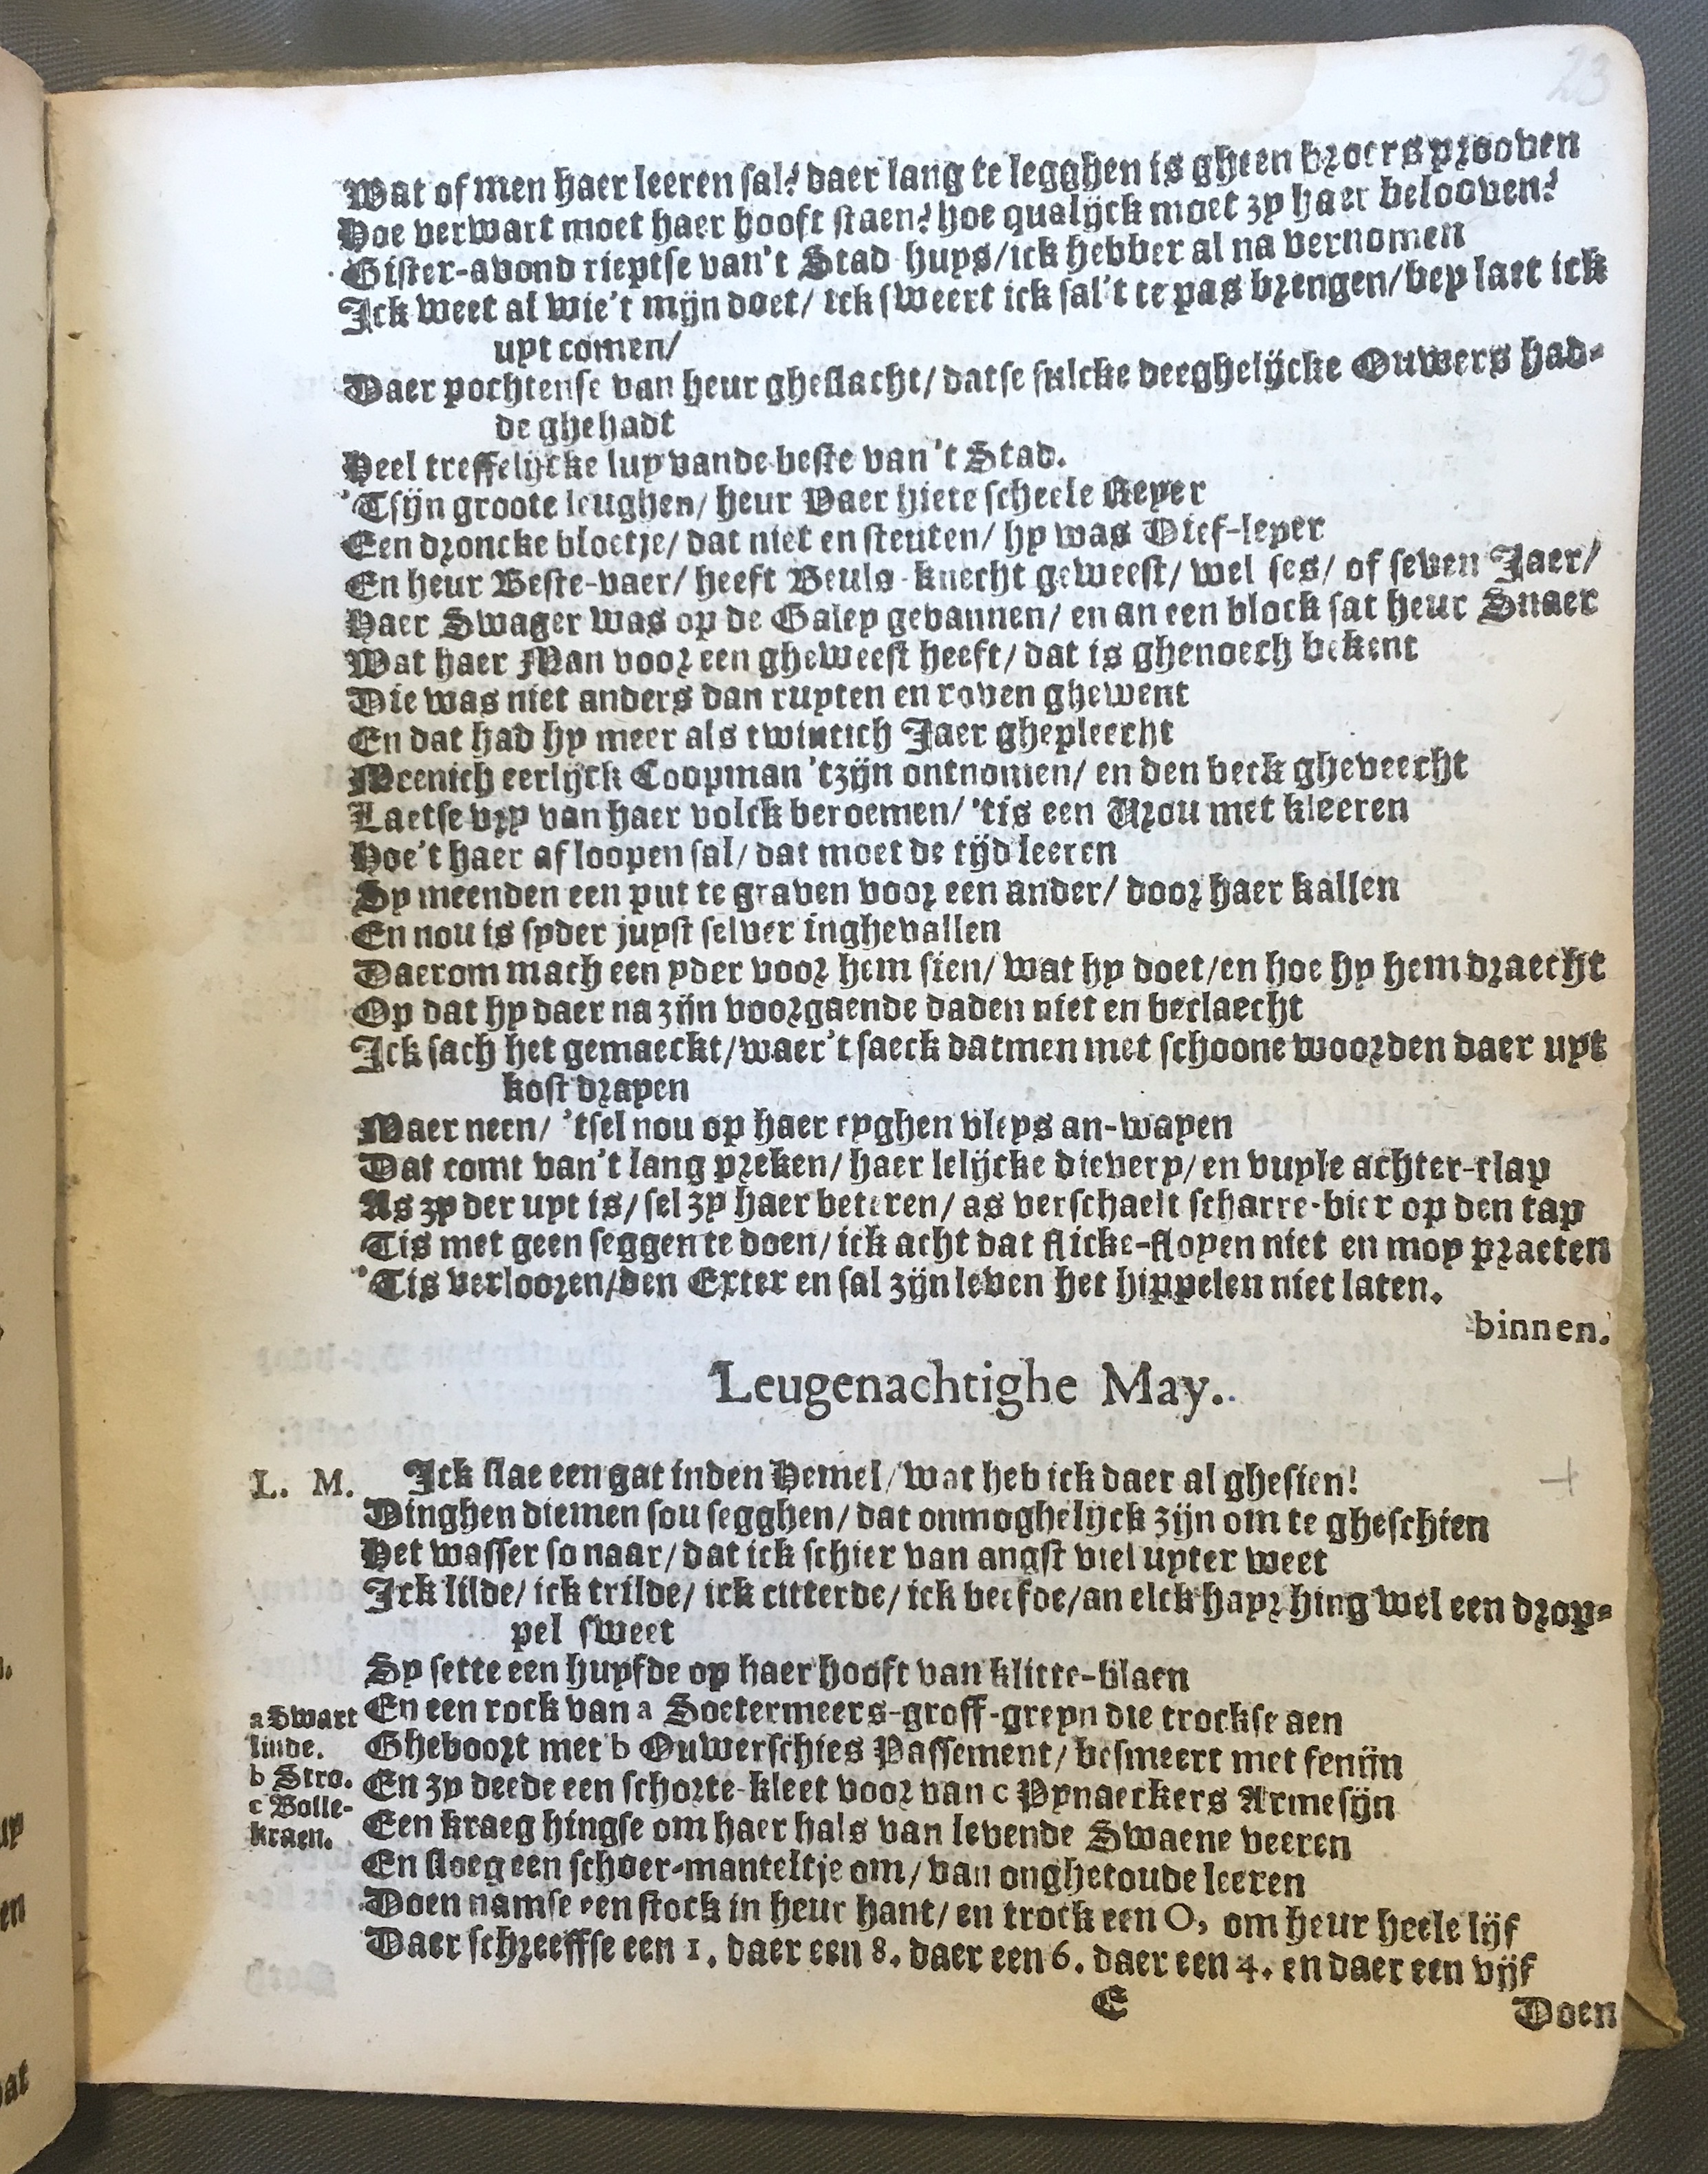 23
Wat of men haer leeren sal? daer lang te legghen is gheen broers prooven
Hoe verwart moet haer hooft staen? hoe qualijck moet zy haer belooven?
Gister-avond rieptse van't Stad huys/ick hebber al na vernomen
Ick weet al wie't mijn doet/ ick sweert ick sal't te pas brengen/bey laet ick
uyt comen/
Daer pochtense van heur gheslacht/ datse sulcke deeghelijcke Ouwers had-
de ghehadt
Heel treffelijcke luy vande beste van't Stad.
'Tsijn groote leughen/ heur Vaer hiete scheele Reyer
Een droncke bloetje/ dat niet en steuten/ hy was Dief-leyer
En heur Beste-vaer/ heeft Beuls-knecht geweest/ wel ses/ of seven Jaer/
Haer Swager was op de Galey gevannen/ en an een block sat heur Snaer
Wat haer Man voor een gheweest heeft/ dat is ghenoech bekent
Die was niet anders dan ruyten en roven ghewent
En dat had hy meer als twintich Jaer ghepleecht
Meenich eerlijck Coopman 'tzijn ontnomen/ en den beck gheveecht
Laetse vry van haer volck beroemen/ 'tis een Vrou met kleeren
Hoe't haer af loopen sal/ dat moet de tijd leeren
Sy meenden een put te graven voor een ander/ door haer kallen
En nou is syder juyst selver inghevallen
Daerom mach een yder voor hem sien/ wat hy doet/en hoe hy hem draecht
Op dat hy daer na zijn voorgaende daden niet en beclaecht
Ick sach het gemaeckt/waer't saeck datmen met schoone woorden daer uyt
kost drayen
Maer neen/ 'tsel nou op haer eyghen vleys an-wayen
Dat comt van't lang preken/ haer lelijcke dievery/en vuyle achter-clap
As zy der uyt is/ sel zy haer beteren/ as verschaelt scharre-bier op den tap
Tis met geen seggen te doen/ ick acht dat flicke-floyen niet en moy praeten
'Tis verlooren/den Exter en sal zijn leven het hippelen niet laten.
binnen.
Leugenachtighe May.
L. M. Ick slae een gat inden Hemel/wat heb ick daer al ghesien!
Dinghen diemen sou segghen/ dat onmoghelijck zijn om te gheschien
Het wasser so naar/ dat ick schier van angst viel uyter weet
Ick lilde/ ick trilde/ ick citterde/ ick beefde/an elck hayr hing wel een drop-
pel sweet
Sy sette een huyfde op haer hooft van klitte-blaen
En een rock van a Soetermeers-groff-greyn die trockse aen
a Swart
linde.
Gheboort met b Ouwerschies Passement/ besmeert met fenijn
b Stro.
En zy deede een schorte-kleet voor van c Pynaeckers Armesijn
c Bolle-
kraen.
Een kraeg hingse om haer hals van levende Swaene veeren
En sloeg een schoer-manteltje om/ van onghetoude leeren
Doen namse een stock in heur hant/ en trock een O, om heur heele lijf
Daer schreeffse een 1. daer een 8. daer een 6. daer een 4. en daer een vijf
E
Doen